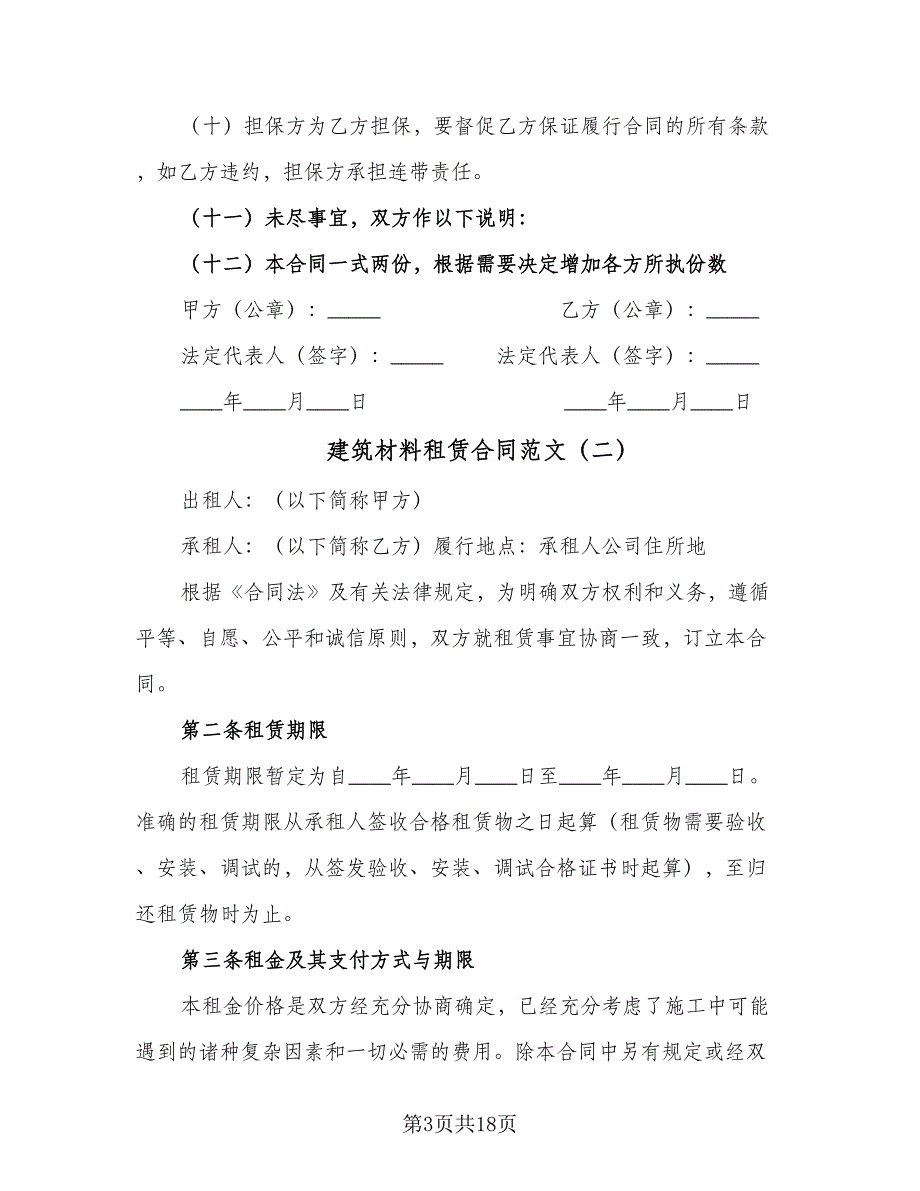 （十）担保方为乙方担保，要督促乙方保证履行合同的所有条款
，如乙方违约，担保方承担连带责任。
（十一）未尽事宜，双方作以下说明：
（十二）本合同一式两份，根据需要决定增加各方所执份数
甲方（公章）：_____ 乙方（公章）：_____
法定代表人（签字）：_____ 法定代表人（签字）：_____
____年____月____日 ____年____月____日
建筑材料租赁合同范文（二）
出租人：（以下简称甲方）
承租人：（以下简称乙方）履行地点：承租人公司住所地
根据《合同法》及有关法律规定，为明确双方权利和义务，遵循
平等、自愿、公平和诚信原则，双方就租赁事宜协商一致，订立本合
同。
第二条租赁期限
租赁期限暂定为自____年____月____日至____年____月____日。
准确的租赁期限从承租人签收合格租赁物之日起算（租赁物需要验收
、安装、调试的，从签发验收、安装、调试合格证书时起算），至归
还租赁物时为止。
第三条租金及其支付方式与期限
本租金价格是双方经充分协商确定，已经充分考虑了施工中可能
遇到的诸种复杂因素和一切必需的费用。除本合同中另有规定或经双
第3页共18页